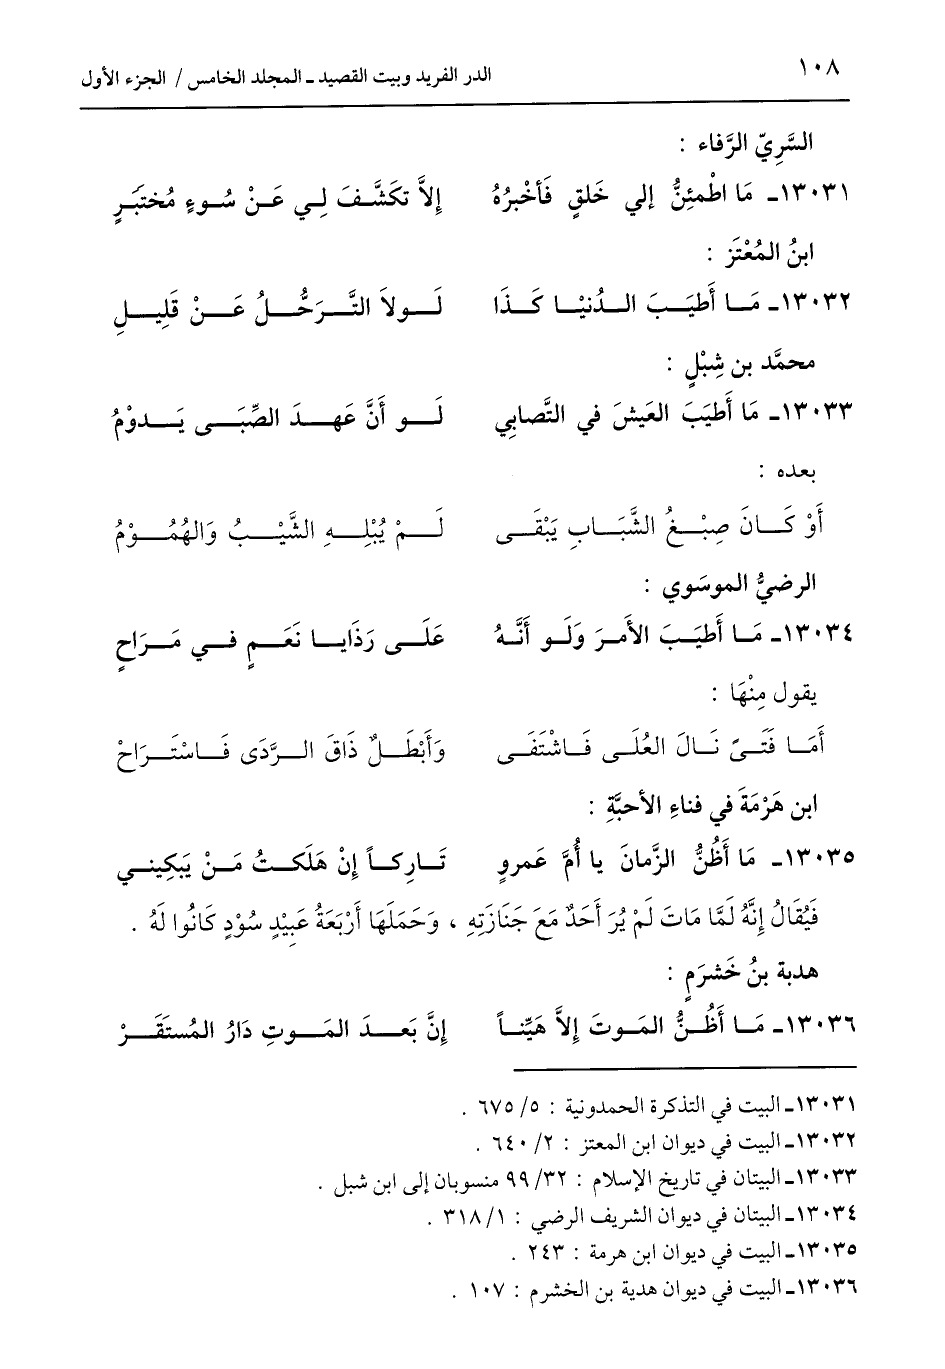 ١٠٨ الدر الفريد وبيت القصيد ـ المجلد الخامس / الجزء الأول
السَّرِيّ الرَّفاء :
١٣٠٣١ـ مَا اطْمئِنُّ إلي خَلقٍ فَأخْبرُهُ إلاَّ تكَشَّفَ لِي عَنْ سُوءِ مُختبَرٍ
ابنُ المُعْتَز :
١٣٠٣٢ـ مَا أَطيَبَ الدُنيْا كَذَا لَولاَ التَّرَحُّلُ عَنْ قَلِيلِ
محمَّد بن شِبْلٍ :
١٣٠٣٣ـ مَا أَطيَبَ العَيشَ في التَّصابِي لَو أَنَّ عَهدَ الصِّبَى يَدوْمُ
بعده :
أَوْ كَانَ صِبْغُ الشَّبَابِ يَبْقَى لَمْ يُبْلِهِ الشَّيْبُ وَالهُمُوْمُ
الرضيُّ الموسَوي :
١٣٠٣٤ـ مَا أَطيَبَ الأَمرَ وَلَو أَنَّهُ عَلَى رَذَايا نَعَمٍ في مَرَاحٍ
يقول مِنْهَا :
أَمَا فَتَىً نَالَ العُلَى فَاشْتَفَى وَأَبْطَلٌ ذَاقَ الرَّدَى فَاسْتَرَاحْ
ابن هَرْمَةَ في فناءِ الأحبَّةِ :
١٣٠٣٥ـ مَا أَظُنُّ الزَّمانَ يا أُمَّ عَمروٍ تَارِكاً إنْ هَلَكتُ مَنْ يَبكِيني
فَيُقَالُ إِنَّهُ لَمَّا مَاتَ لَمْ يُرَ أَحَدٌ مَعَ جَنَازَتِهِ ، وَحَمَلَهَا أَرْبَعَةُ عَبِيْدٍ سُوْدٍ كَانُوا لَهُ .
هدبة بنُ خَشرَمٍ :
١٣٠٣٦ـ مَا أَظُنُّ المَوتَ إلاَّ هَيِّناً إنَّ بَعدَ الموتِ دَارُ المُستَقَرْ
١٣٠٣١ـ البيت في التذكرة الحمدونية : ٥/ ٦٧٥ .
١٣٠٣٢ـ البيت في ديوان ابن المعتز : ٢/ ٦٤٠ .
١٣٠٣٣ـ البيتان في تاريخ الإسلام : ٣٢/ ٩٩ منسوبان إلى ابن شبل .
١٣٠٣٤ـ البيتان في ديوان الشريف الرضي : ١/ ٣١٨ .
١٣٠٣٥ـ البيت في ديوان ابن هرمة : ٢٤٣ .
١٣٠٣٦ـ البيت في ديوان هدية بن الخشرم : ١٠٧ .